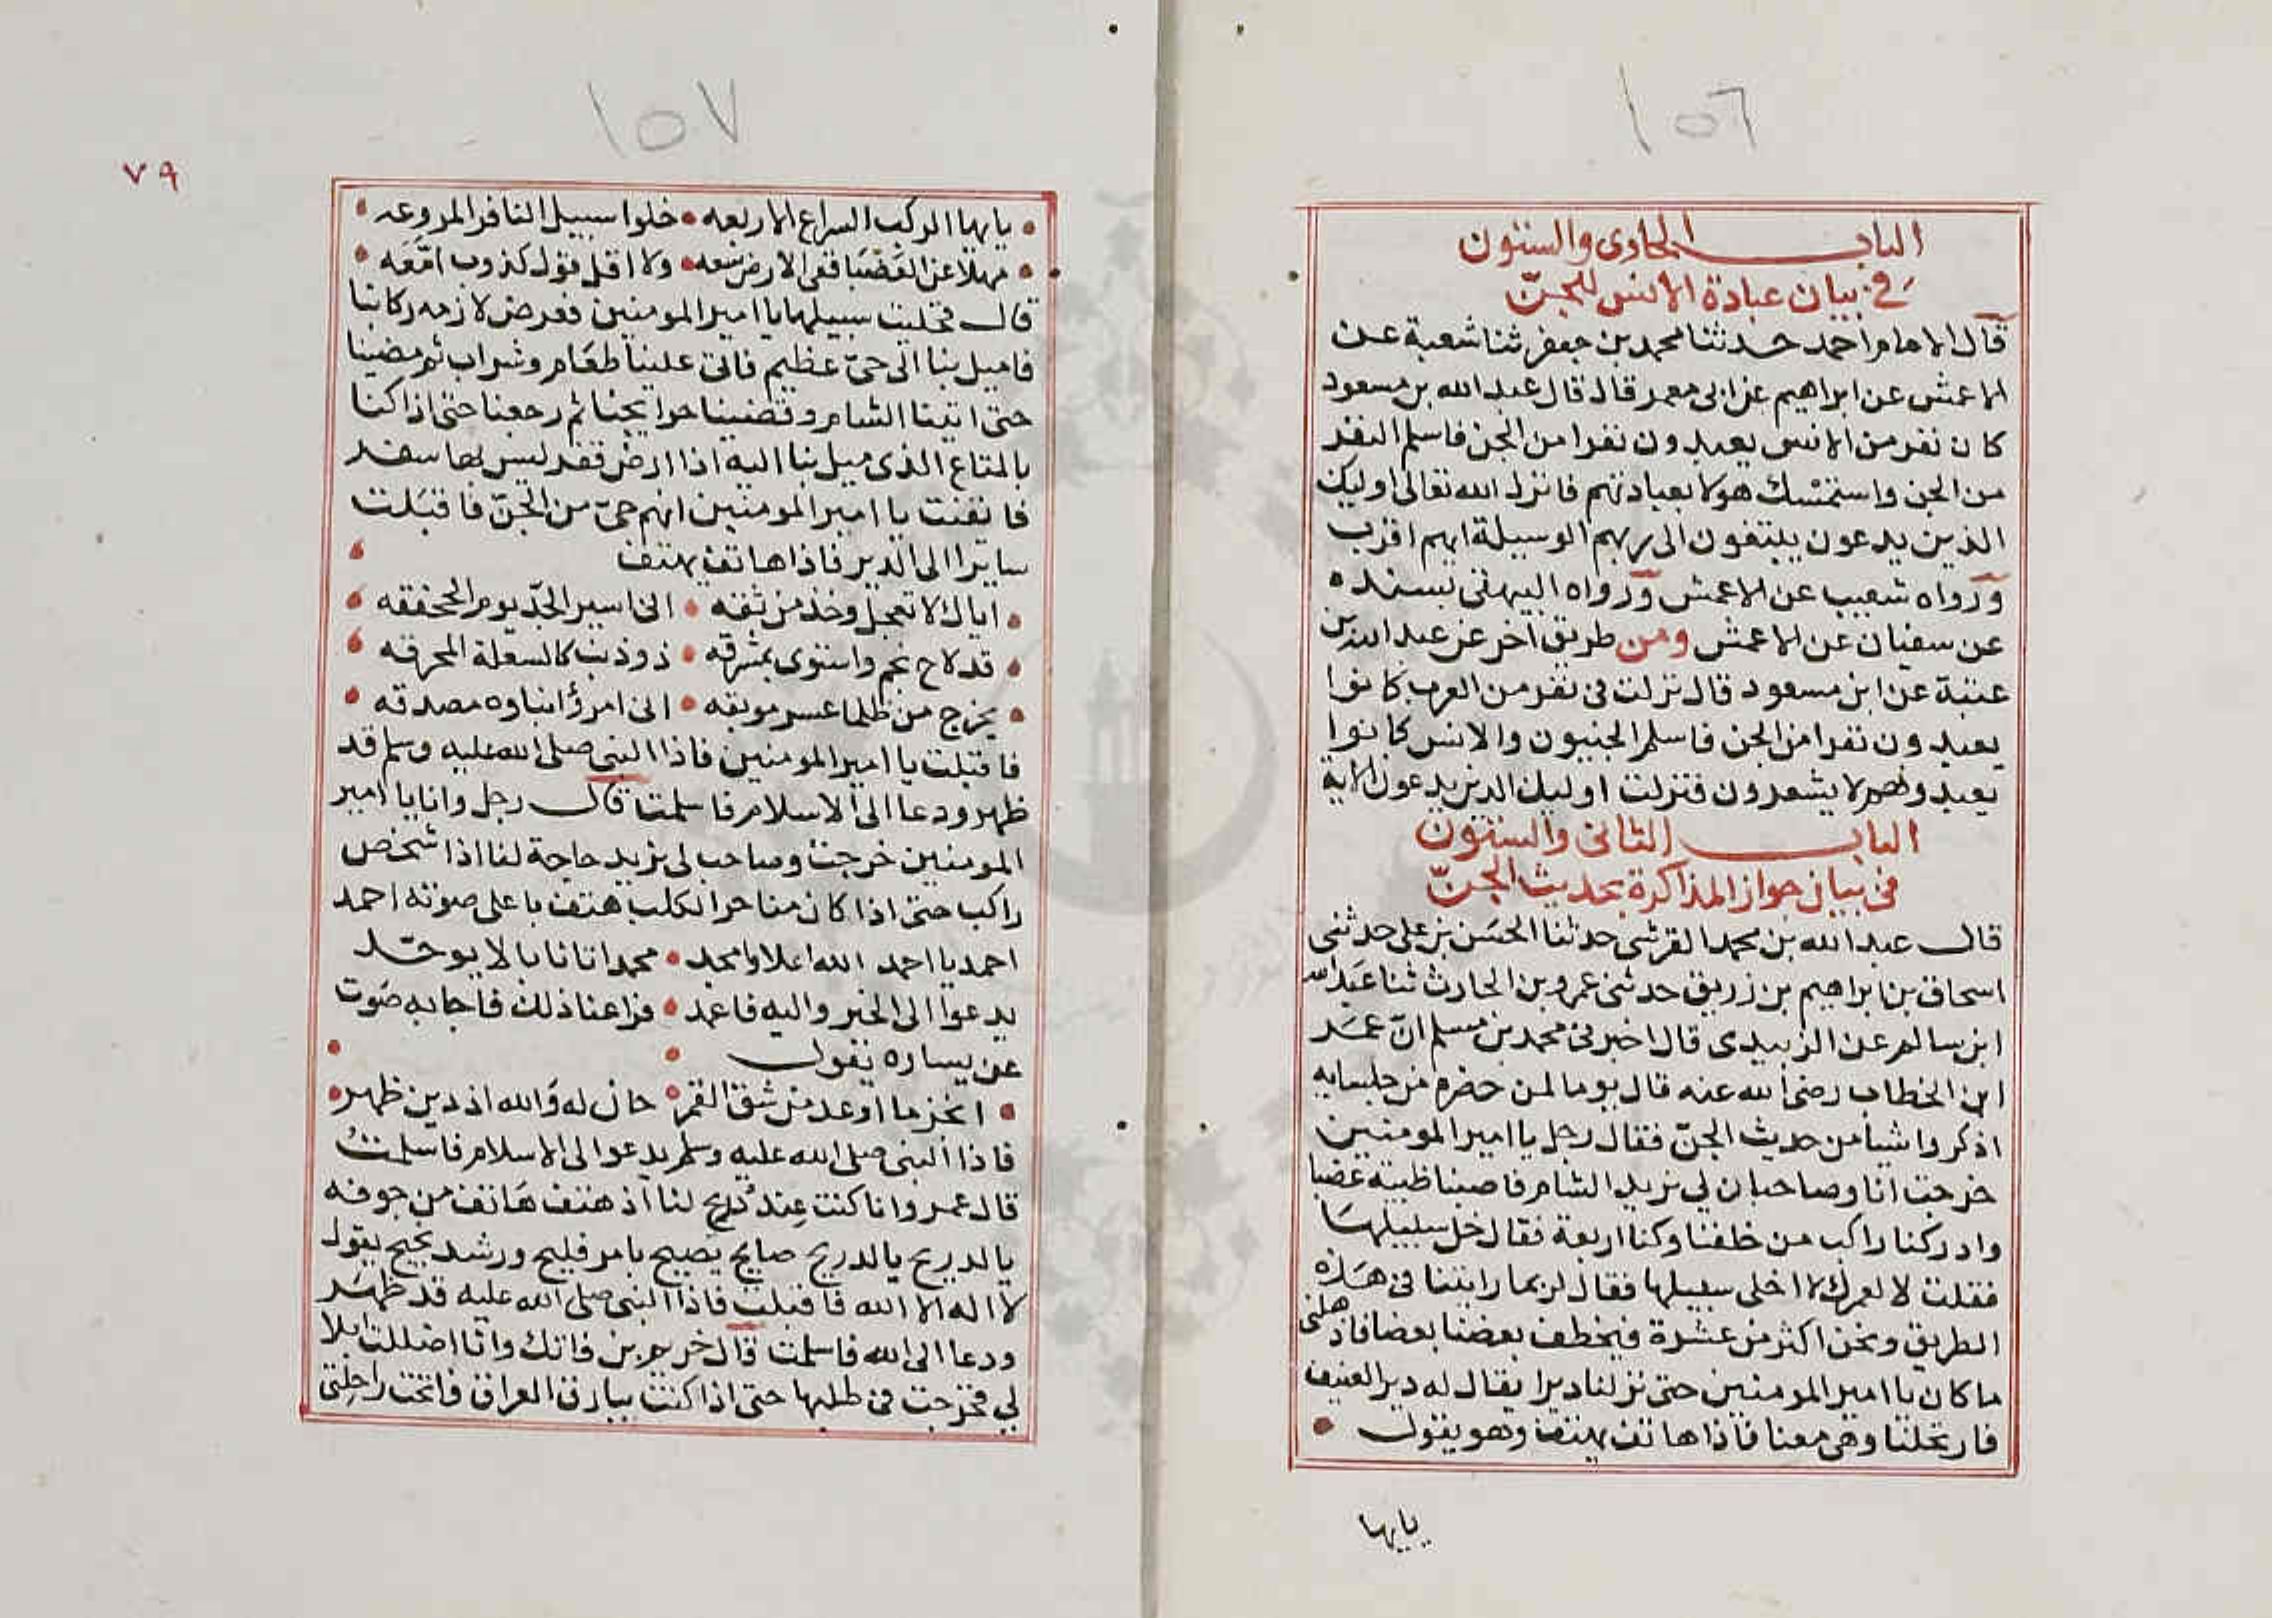 ١٥٦
الباب الحاوى والستون
فى بيان عبادة الانس للجنّ
قال الامام احمد حدثنا محمد بن جعفر ثنا شعبة عن
الاعمش عن ابراهيم عن ابى معمر قال قال عبد الله بن مسعود
كان نفر من الانس يعبدون نفرا من الجن فاسلم النفر
من الجن واستمسك هولا بعبادتهم فانزل الله تعالى اوليك
الذين يدعون يبتغون الى ربهم الوسيلة ايهم اقرب
ورواه شعيب عن الاعمش ورواه البيهقى بسنده
عن سفيان عن الاعمش ومن طريق آخر عن عبد الله بن
عتبة عن ابن مسعود قال نزلت فى نفر من العرب كانوا
يعبدون نفرا من الجن فاسلم الجنيون والانس كانوا
يعبدونهم لا يشعرون فنزلت اوليك الذين يدعون الاية
الباب الثانى والستون
فى بيان جواز المذاكرة بحديث الجنّ
قال عبد الله بن محمد القرشى حدثنا الحسن بن على حدثنى
اسحاق بن ابراهيم بن زريق حدثنى عمرو بن الحارث ثنا عبد الله
ابن سالم عن الزبيدى قال اخبرنى محمد بن مسلم انّ عمر
ابن الخطاب رضى الله عنه قال يوما لمن حضره من جلسايه
اذكروا شيأ من حديث الجنّ فقال رجل يا امير المومنين
خرجت انا وصاحبان لي نريد الشام فاصبنا ظبية عضبا
وادركنا راكب من خلفنا وكنا اربعة فقال خل سبيلها
فقلت لا لعمرك لا اخلى سبيلها فقال لربما رايتنا فى هذه
الطريق ونحن اكثر من عشرة فيخطف بعضنا بعضا فاذهلنى
ما كان يا امير المومنين حتى نزلنا ديرا يقال له دير العنيف
فارتحلنا وهى معنا فاذا هاتف يهتف وهو يقول
يايها
١٥٧
٧٩
يايها الركب السراع الاربعه خلوا سبيل النافر المروعه
مهلا عن العضبا ففى الارض سعه ولا اقل قول كذوب امّعه
قال فخليت سبيلها يا امير المومنين فعرض لازمه ركابنا
فاميل بنا الى حىّ عظيم فاتى علينا طعام وشراب ثم مضينا
حتى اتينا الشام وقضينا حوايجنا ثم رجعنا حتى اذا كنا
بالمتاع الذى ميل بنا اليه اذا ارض قفر ليس بها سفر
فايقنت يا امير المومنين انهم حىّ من الجنّ فاقبلت
سايرا الى الدير فاذا هاتف يهتف
اياك لا تعجل وخذ من ثقه انى اسير الجدّ يوم الحقحقه
قد لاح نجم واستوى بمشرقه ذو ذنب كالسعلة المحرقه
يخرج من ظلما عسر موبقه انى امرؤ انباوه مصدقه
فاقبلت يا امير المومنين فاذا النبى صلى الله عليه وسلم قد
ظهر ودعا الى الاسلام فاسلمت قال رجل وانا يا امير
المومنين خرجت وصاحب لى نريد حاجة لنا اذا شخص
راكب حتى اذا كان منا حر الكلب هتف باعلى صوته احمد
احمد يا احمد الله اعلا وامجد محمد اتانا بالا يوحّد
يدعوا الى الخير واليه فاعمد فراعنا ذلك فاجابه صوت
عن يساره يقول
انجز ما اوعد من شق القمر حان له والله اذ دين ظهر
فاذا النبى صلى الله عليه وسلم يدعوا الى الاسلام فاسلمت
قال عمر وانا كنت عند ذريح لنا اذ هتف هاتف من جوفه
يالدريح يالدريح صايح يصيح بامر فليح ورشد نجيح يقول
لا اله الا الله فاقبلت فاذا النبى صلى الله عليه قد ظهر
ودعا الى الله فاسلمت قال خريم بن فاتك وانا اضللت ابلا
لي فخرجت فى طلبها حتى اذا كنت ببارق العراق فانخت راحلتى